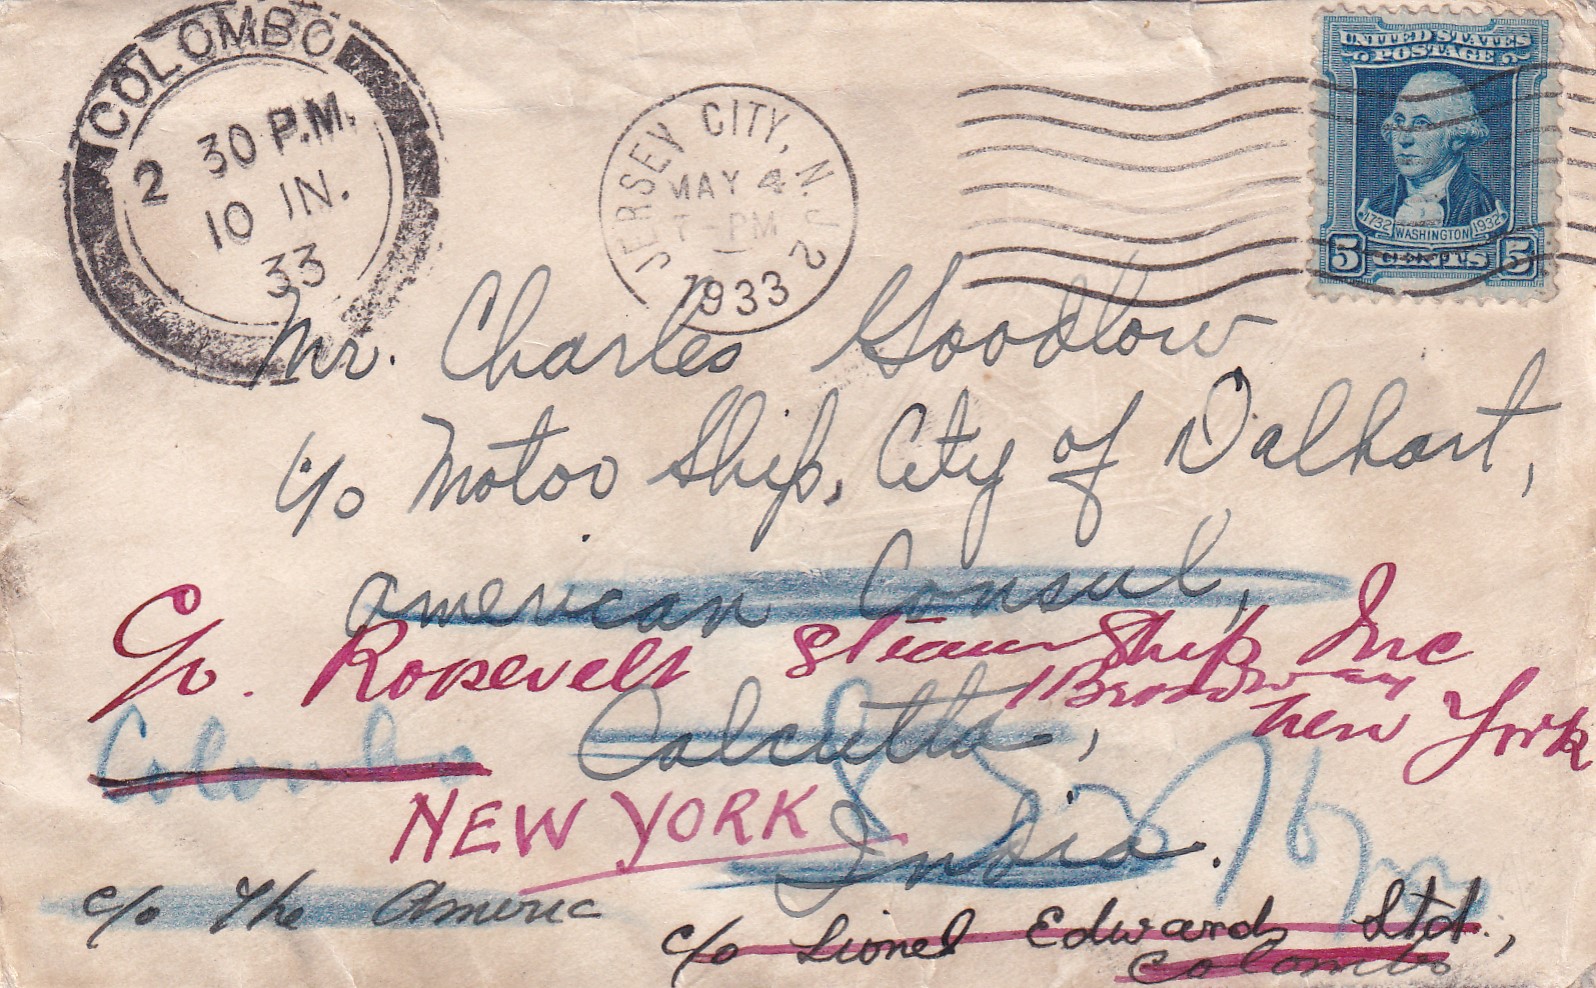 COLOMBO
2 30 P.M.
10 JN.
33
JERSEY CITY, N.J. 2
MAY 4
PM
1933
UNITED STATES
POSTAGE
1732 WASHINGTON 1932
5 CENTS 5
Mr. Charles Goodlow
c/o Motor Ship, City of Dalhart,
American Consul,
C/o. Roosevelt Steam Ship Inc
1 Broadway
New York
Colombo
Calcutta,
NEW YORK
India.
c/o The Americ
c/o Lionel Edwards Ltd.,
Colombo